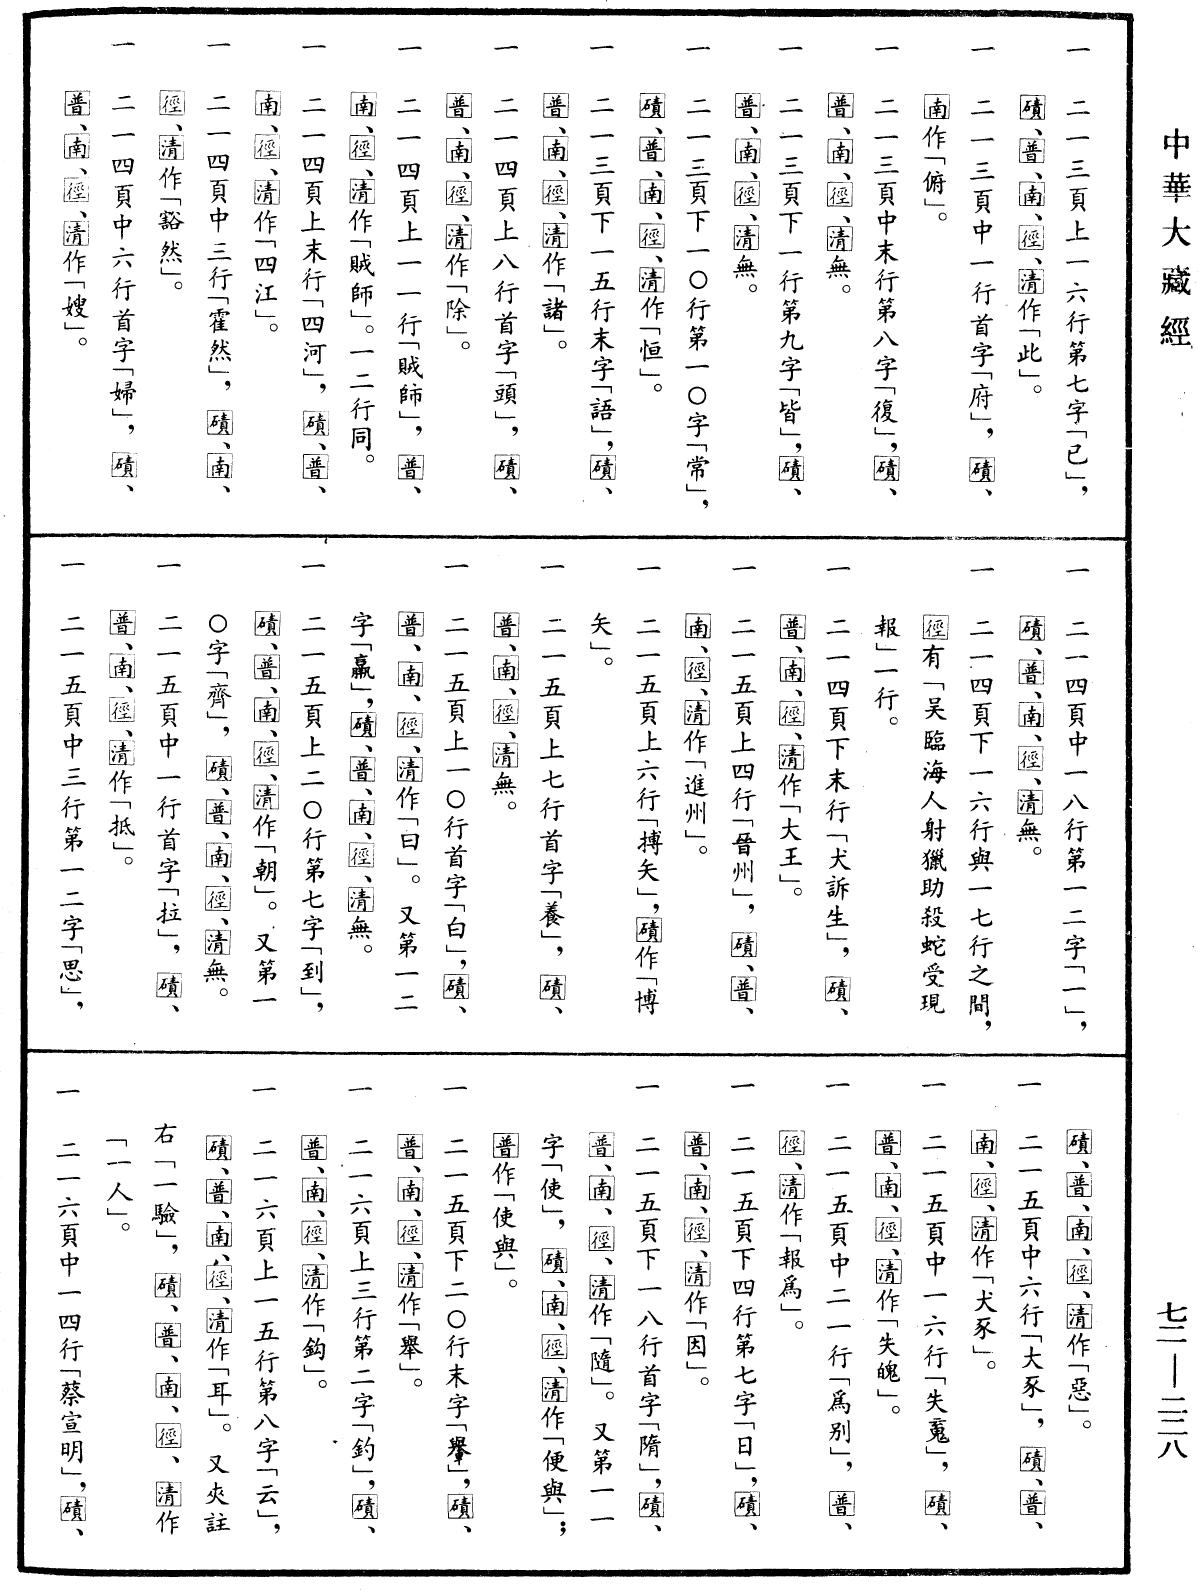 中華大藏經
一 二一三頁上一六行第七字「已」，
磧、普、南、徑、清作「此」。
一 二一三頁中一行首字「府」，磧、
南作「俯」。
一 二一三頁中末行第八字「復」，磧、
普、南、徑、清無。
一 二一三頁下一行第九字「皆」，磧、
普、南、徑、清無。
一 二一三頁下一〇行第一〇字「常」，
磧、普、南、徑、清作「恒」。
一 二一三頁下一五行末字「語」，磧、
普、南、徑、清作「諸」。
一 二一四頁上八行首字「頭」，磧、
普、南、徑、清作「除」。
一 二一四頁上一一行「賊師」，普、
南、徑、清作「賊師」。一二行同。
一 二一四頁上末行「四河」，磧、普、
南、徑、清作「四江」。
一 二一四頁中三行「霍然」，磧、南、
徑、清作「豁然」。
一 二一四頁中六行首字「婦」，磧、
普、南、徑、清作「嫂」。
一 二一四頁中一八行第一二字「一」，
磧、普、南、徑、清無。
一 二一四頁下一六行與一七行之間，
徑有「吴臨海人射獵助殺蛇受現
報」一行。
一 二一四頁下末行「犬訴生」，磧、
普、南、徑、清作「大王」。
一 二一五頁上四行「晉州」，磧、普、
南、徑、清作「進州」。
一 二一五頁上六行「搏矢」，磧作「博
矢」。
一 二一五頁上七行首字「養」，磧、
普、南、徑、清無。
一 二一五頁上一〇行首字「白」，磧、
普、南、徑、清作「曰」。又第一二
字「羸」，磧、普、南、徑、清無。
一 二一五頁上二〇行第七字「到」，
磧、普、南、徑、清作「朝」。又第一
〇字「齊」，磧、普、南、徑、清無。
一 二一五頁中一行首字「拉」，磧、
普、南、徑、清作「抵」。
一 二一五頁中三行第一二字「思」，
磧、普、南、徑、清作「惡」。
一 二一五頁中六行「大豕」，磧、普、
南、徑、清作「犬豕」。
一 二一五頁中一六行「失䰟」，磧、
普、南、徑、清作「失魄」。
一 二一五頁中二一行「爲别」，普、
徑、清作「報爲」。
一 二一五頁下四行第七字「日」，磧、
普、南、徑、清作「因」。
一 二一五頁下一八行首字「隋」，磧、
普、南、徑、清作「隨」。又第一一
字「使」，磧、南、徑、清作「便與」；
普作「使與」。
一 二一五頁下二〇行末字「轝」，磧、
普、南、徑、清作「舉」。
一 二一六頁上三行第二字「釣」，磧、
普、南、徑、清作「鈎」。
一 二一六頁上一五行第八字「云」，
磧、普、南、徑、清作「耳」。又夾註
右「一驗」，磧、普、南、徑、清作
「一人」。
一 二一六頁中一四行「蔡宣明」，磧、
七二—二二八